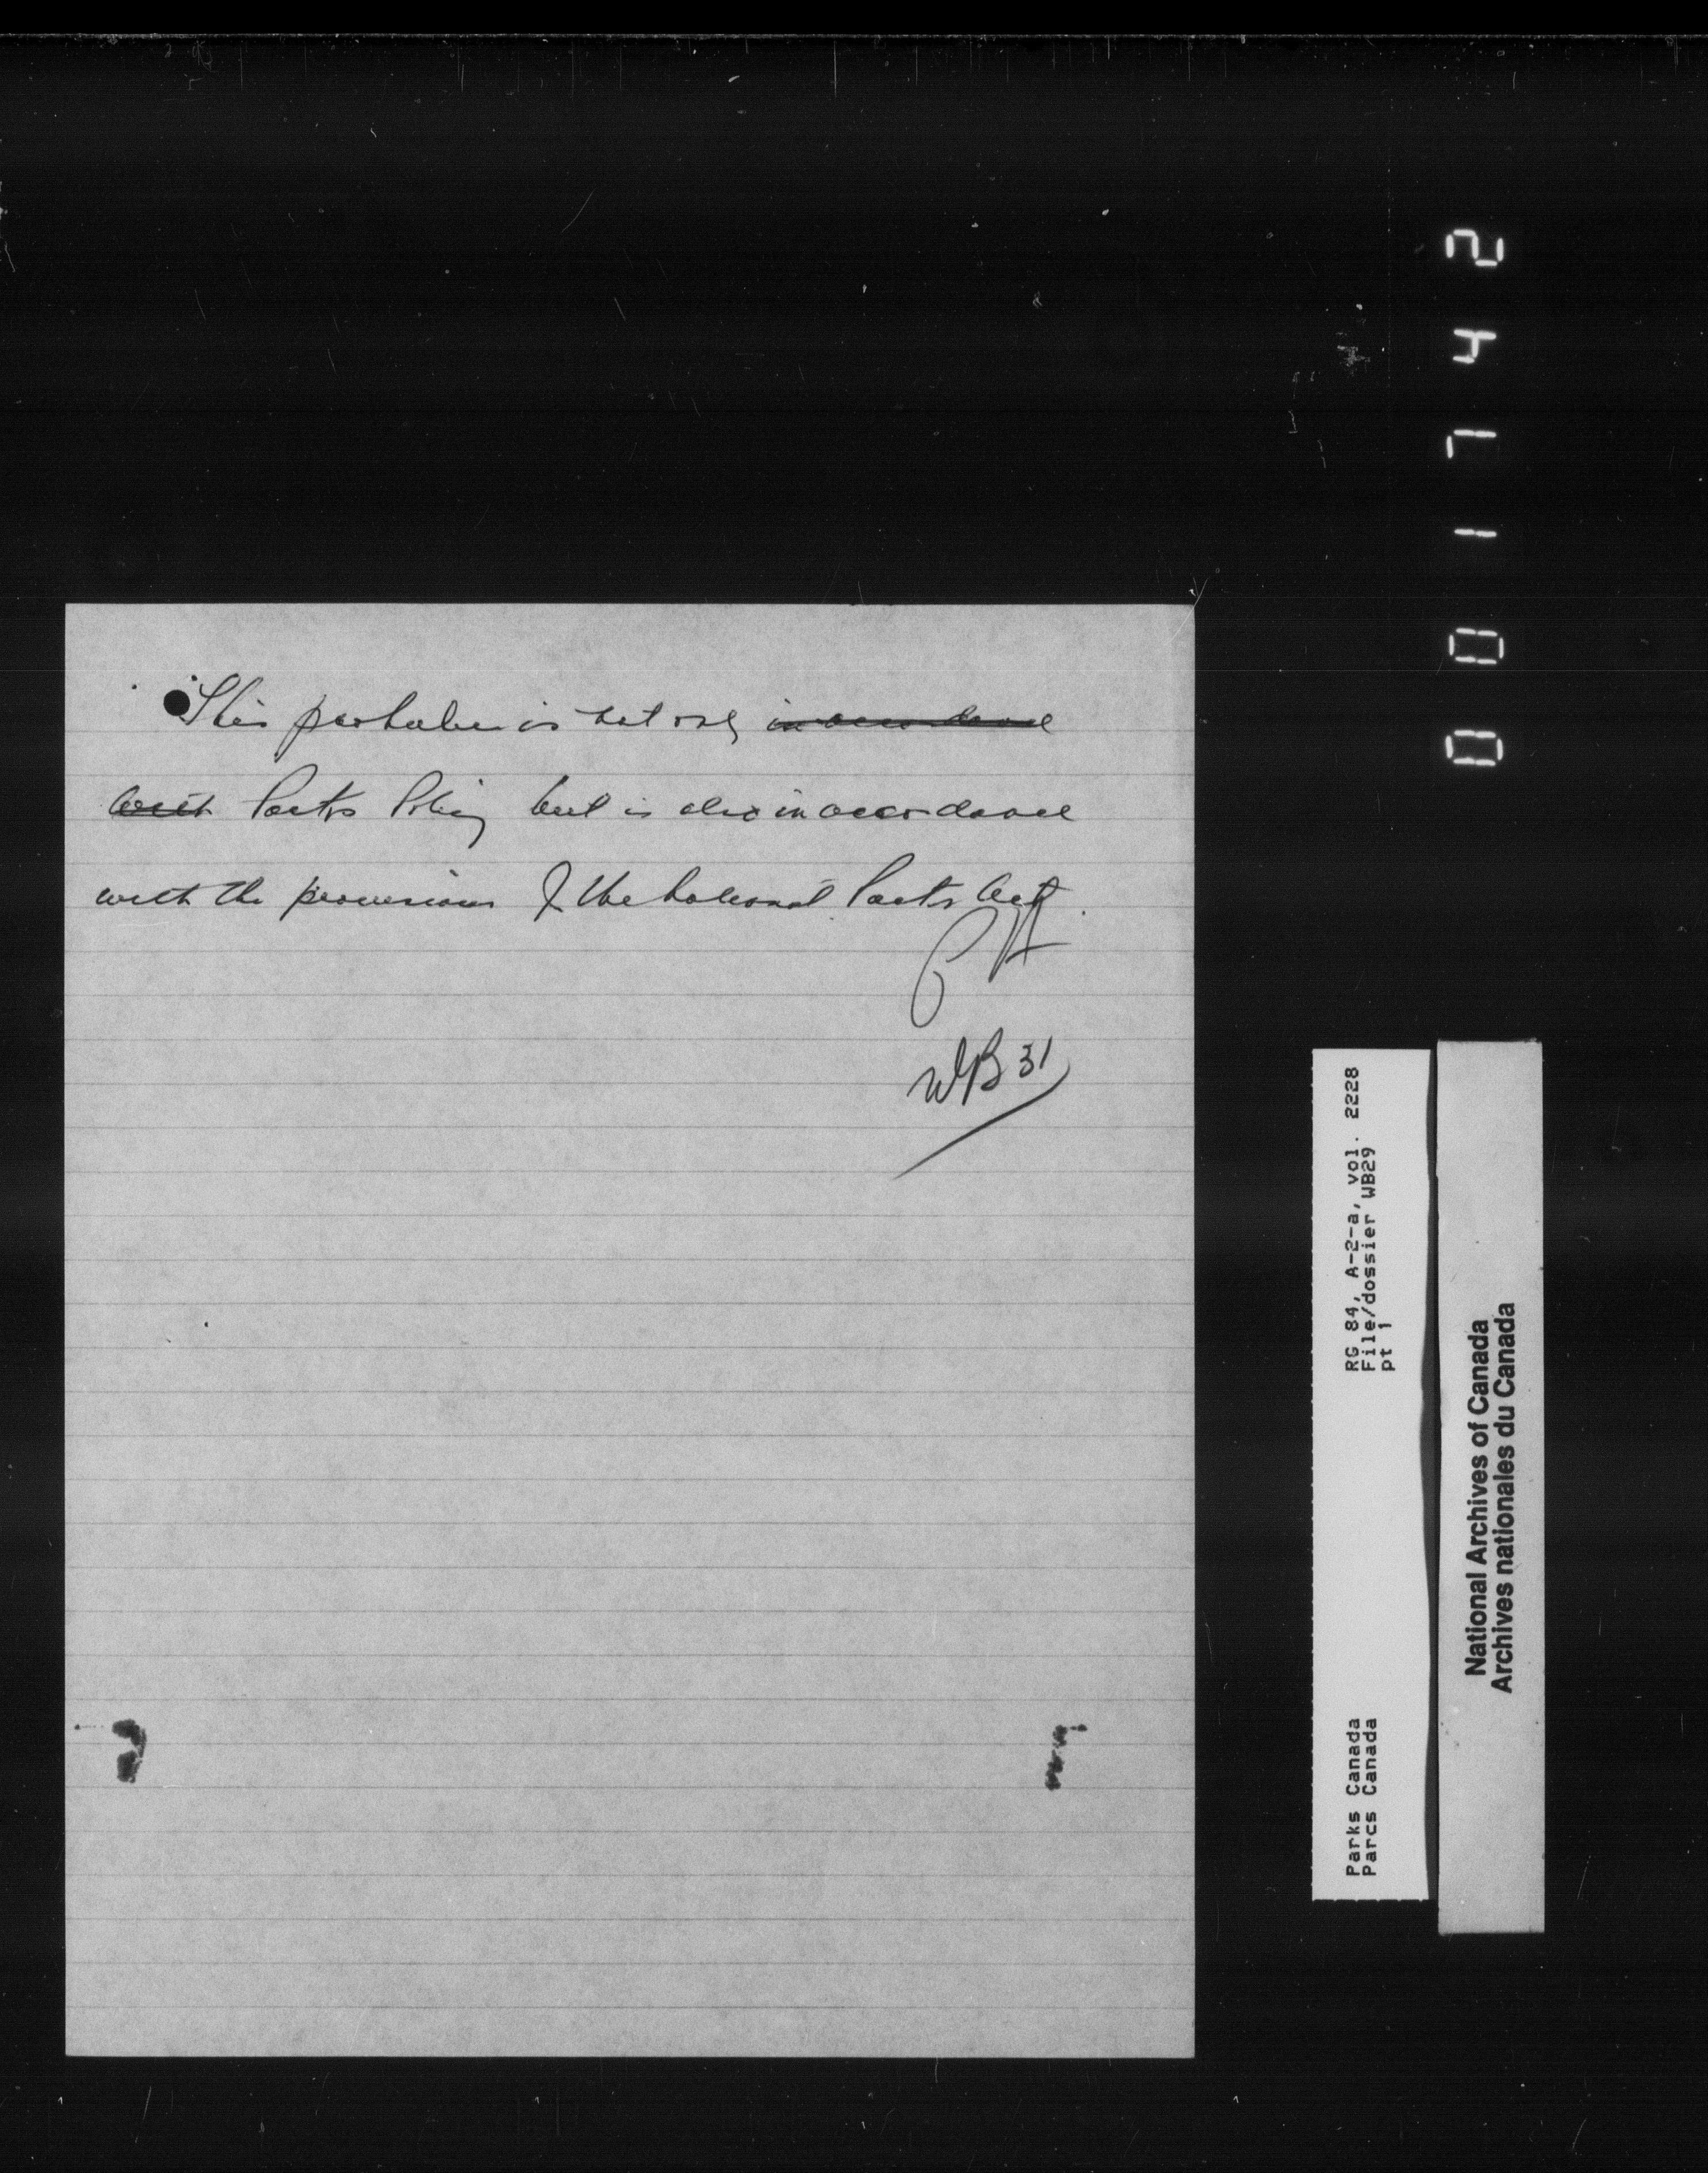 This prohibition is not only in accordance
with Parks Policy but is also in accordance
with the provisions of the National Parks Act.
WB 31
001742
RG 84, A-2-a, vol. 2228
File/dossier WB29
pt 1
Parks Canada
Parcs Canada
National Archives of Canada
Archives nationales du Canada